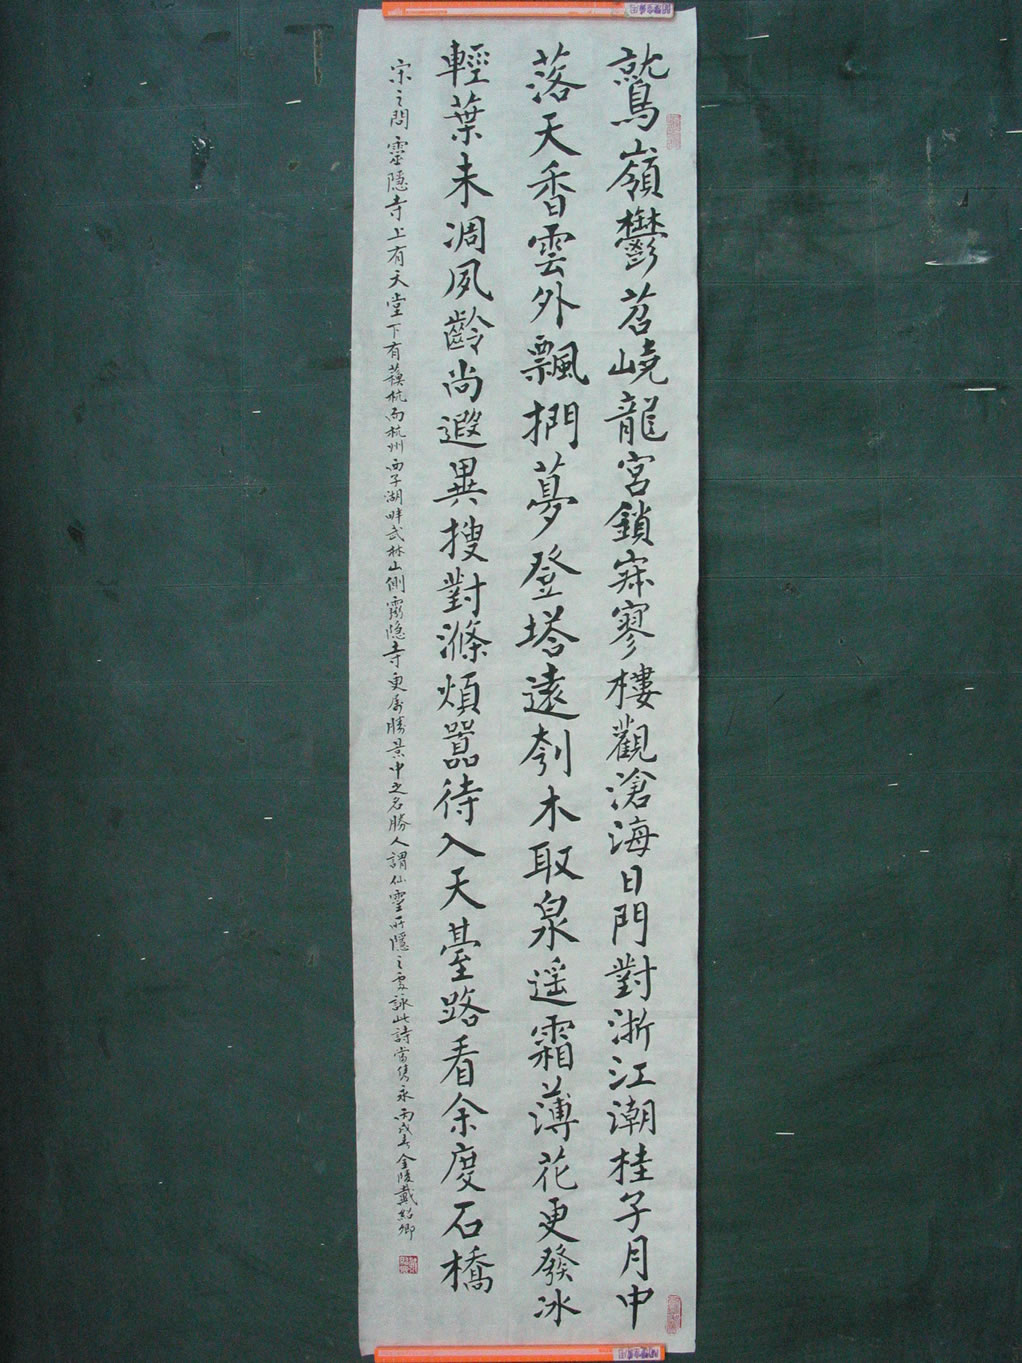 鷲嶺鬱岧嶢龍宮鎖寂寥樓觀滄海日門對浙江潮桂子月中
落天香雲外飄捫蘿登塔遠刳木取泉遥霜薄花更發冰
輕葉未凋夙齡尚遐異搜對滌煩囂待入天臺路看余度石橋
宋之問靈隱寺上有天堂下有蘇杭而杭州西子湖畔武林山側靈隱寺更爲勝景中之名勝人謂仙靈所隱之處詠此詩當雋永丙戌冬金陵戴紹卿